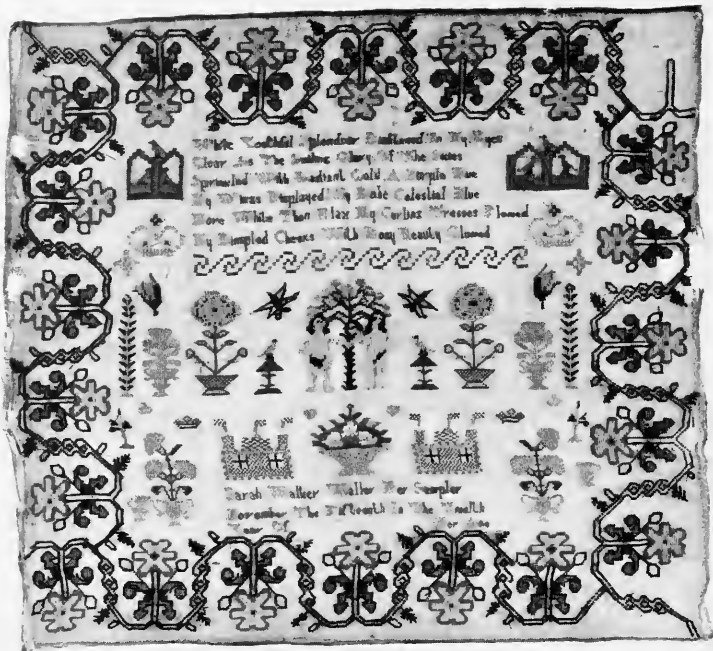 While Youthful Splendour In My Eyes
Clear As The Smiling Glory Of The Skies
Sprinkled With Radiant Gold A Purple Hue
My Wings Displayed My Robe Celestial Blue
More White Than Flax My Curling Tresses Flowed
My Dimpled Cheeks With Rosy Beauty Glowed
Sarah Walker Waller Her Sampler
November The Fifteenth In The
Year Of Her Age